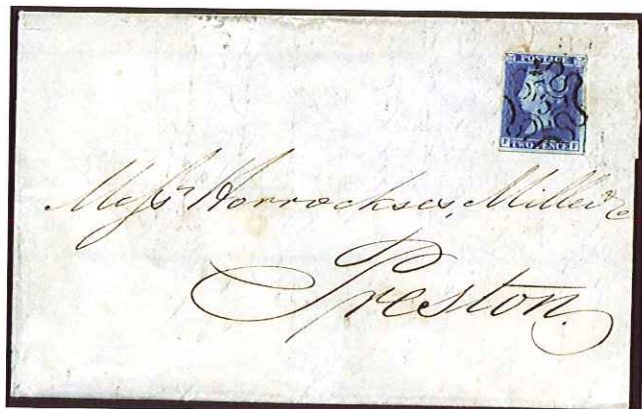 POSTAGE
TWO PENCE
F F
Messrs Horrockses, Miller & Co
Preston